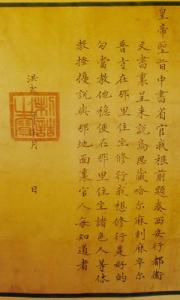 皇帝聖旨中書省官我根前題奏西安行都衛
文書裏呈來說烏思藏哈尔麻剌麻卒尔
普寺在那里住坐修行我想修行是好的
勾當教他穩便在那里住坐諸色人等休
教擾擾說與那地面裏官人每知道者
洪武 月 日